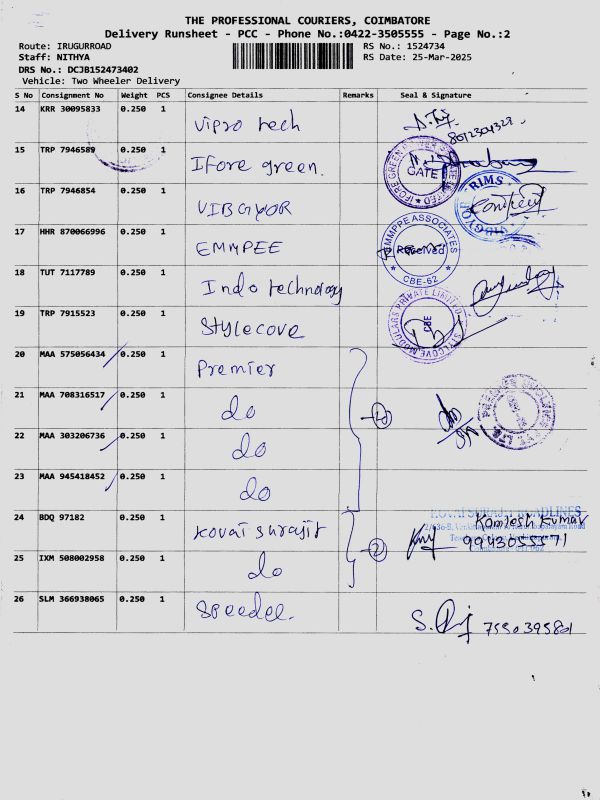 THE PROFESSIONAL COURIERS, COIMBATORE
Delivery Runsheet - PCC - Phone No.:0422-3505555 - Page No.:2
Route: IRUGURROAD RS No.: 1524734
Staff: NITHYA RS Date: 25-Mar-2025
DRS No.: DCJB152473402
Vehicle: Two Wheeler Delivery
S No Consignment No Weight PCS Consignee Details Remarks Seal & Signature
14 KRR 30095833 0.250 1 Vipro tech
15 TRP 7946589 0.250 1 IFore green.
GATE
16 TRP 7946854 0.250 1 VIBGYOR
RIMS
17 HHR 870066996 0.250 1 EMMPEE
EMMPPE ASSOCIATES
Received
CBE-62
18 TUT 7117789 0.250 1 Indo technology
19 TRP 7915523 0.250 1 Stylecove
STYLCOVE MODULARS PRIVATE LIMITED
CBE
20 MAA 575056434 0.250 1 Premier
21 MAA 708316517 0.250 1 do
22 MAA 303206736 0.250 1 do
23 MAA 945418452 0.250 1 do
24 BDQ 97182 0.250 1 Kovai Surajit
KOVAI SURAJIT ROADLINES
Kamlesh Kumar
9943055571
25 IXM 508002958 0.250 1 do
2
26 SLM 366938065 0.250 1 Speedee.
7550395801